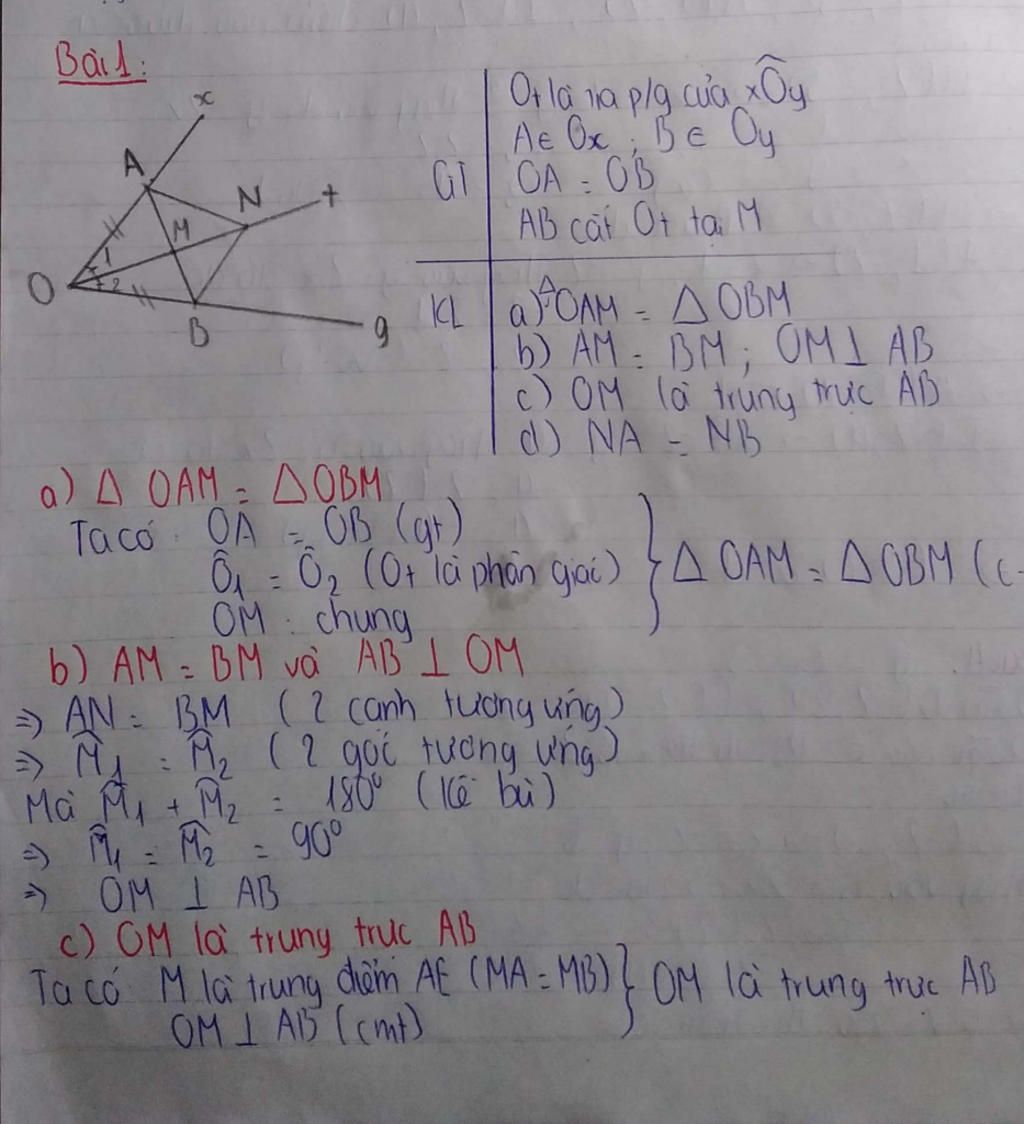 Bài 1:
x
A
N
t
M
1
O
2
B
y
GT
Ot là tia p/g của xÔy
A ∈ Ox ; B ∈ Oy
OA = OB
AB cắt Ot tại M
KL
a) Δ OAM = Δ OBM
b) AM = BM ; OM ⊥ AB
c) OM là trung trực AB
d) NA = NB
a) Δ OAM = Δ OBM
Ta có : OA = OB (gt)
Ô₁ = Ô₂ (Ot là phân giác) } Δ OAM = Δ OBM (c-
OM : chung
b) AM = BM và AB ⊥ OM
=> AN = BM ( 2 cạnh tương ứng)
=> M̂₁ = M̂₂ ( 2 góc tương ứng)
Mà M̂₁ + M̂₂ = 180⁰ (Kề bù)
=> M̂₁ = M̂₂ = 90⁰
=> OM ⊥ AB
c) OM là trung trực AB
Ta có M là trung điểm AE (MA = MB) } OM là trung trực AB
OM ⊥ AB (cmt)